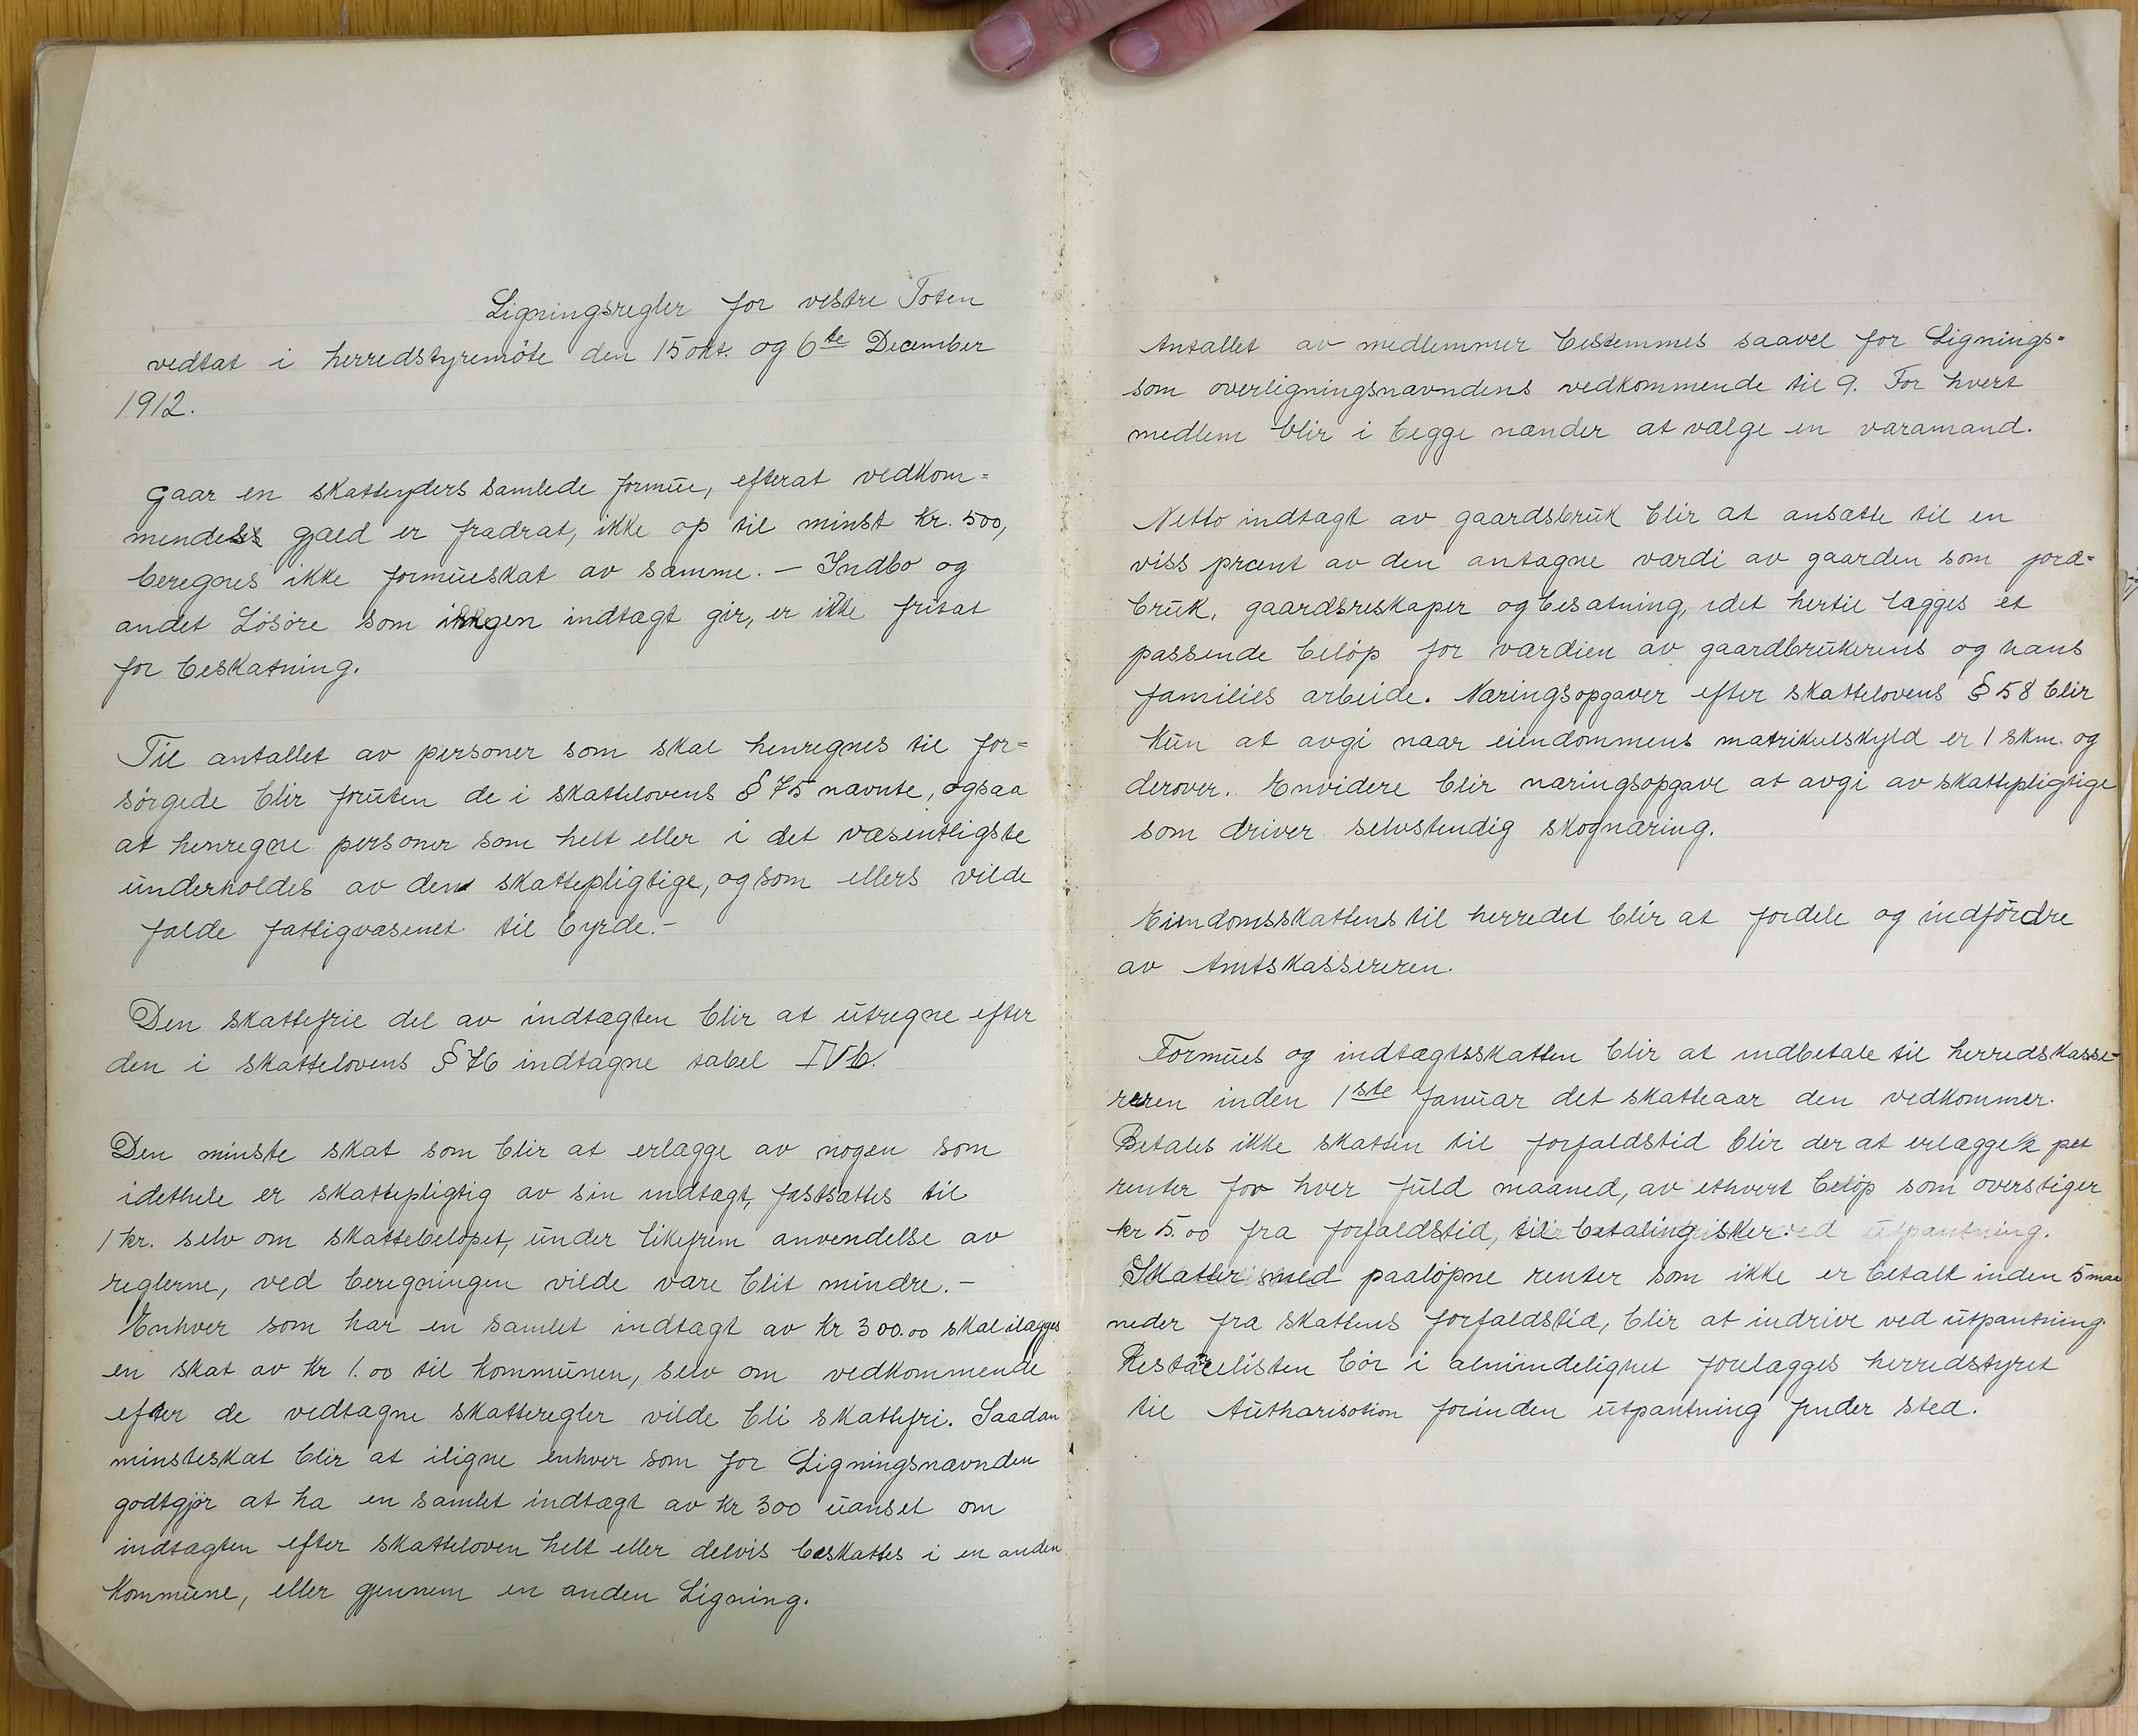 Ligningsregler for vestre Toten
vedtat i herredstyremöte den 15 okt. og 6te December
1912.
Gaar en skatteyders samlede formue, efterat vedkom=
mendes gjæld er fradrat, ikke op til minst kr. 500,
beregnes ikke formueskat av samme. - Indbo og
andet Lösöre som ingen indtægt gir, er ikke fritat
for beskatning.
Til antallet av personer som skal henregnes til for=
sörgede blir foruten de i skattelovens § 75 nævnte, ogsaa
at henregne personer som helt eller i det væsentligste
underholdes av den skattepligtige, og som ellers vilde
falde fattigvæsenet til byrde.-
Den skattefrie del av indtægten blir at utregne efter
den i skattelovens § 76 indtagne tabel IVb.
Den minste skat som blir at erlægge av nogen som
idethele er skattepligtig av sin indtægt, fastsættes til
1 kr. selv om skattebelöpet, under likefrem anvendelse av
reglerne, ved beregningen vilde være blit mindre.-
Enhver som har en samlet indtægt av kr 300.00 skal ilægges
en skat av kr 1.00 til kommunen, selv om vedkommende
efter de vedtagne skatteregler vilde bli skattefri. Saadan
minsteskat blir at iligne enhver som for Ligningsnævnden
godtgjör at ha en samlet indtægt av kr 300 uanset om
indtægten efter skatteloven helt eller delvis beskattes i en anden
kommune, eller gjennem en anden Ligning.
Antallet av medlemmer bestemmes saavel for Lignings=
som overligningsnævndens vedkommende til 9. For hvert
medlem blir i begge nænder at vælge en varamand.
Netto indtægt av gaardsbruk blir at ansætte til en
viss prcent av den antagne værdi av gaarden som jord=
bruk, gaardsreskaper og besætning, idet hertil lægges et
passende belöp for værdien av gaardbrukerens og hans
families arbeide. Næringsopgaver efter skattelovens § 58 blir
kun at avgi naar eiendommens matrikulskyld er 1 skm. og
derover. Envidere blir næringsopgave at avgi av skattepligtige
som driver selvstendig skognæring.
Eiendomsskattens til herredet blir at fordele og indfördre
av Amtskassereren.
Formues og indtægtsskatten blir at indbetale til herredskasse-
reren inden 1ste Januar det skatteaar den vedkommer.
Betales ikke skatten til forfaldstid blir der at erlægge ½ pct
renter for hver fuld maaned, av ethvert belöp som overstiger
kr 5.00 fra forfaldstid, til betaling sker ved utpantning.
Skatter med paalöpne renter som ikke er betalt inden 5 maa
neder fra skattens forfaldstid, blir at indrive ved utpantning.
Restancelisten bör i almindelighet forelægges herredstyret
til Autharisation forinden utpantning finder sted.